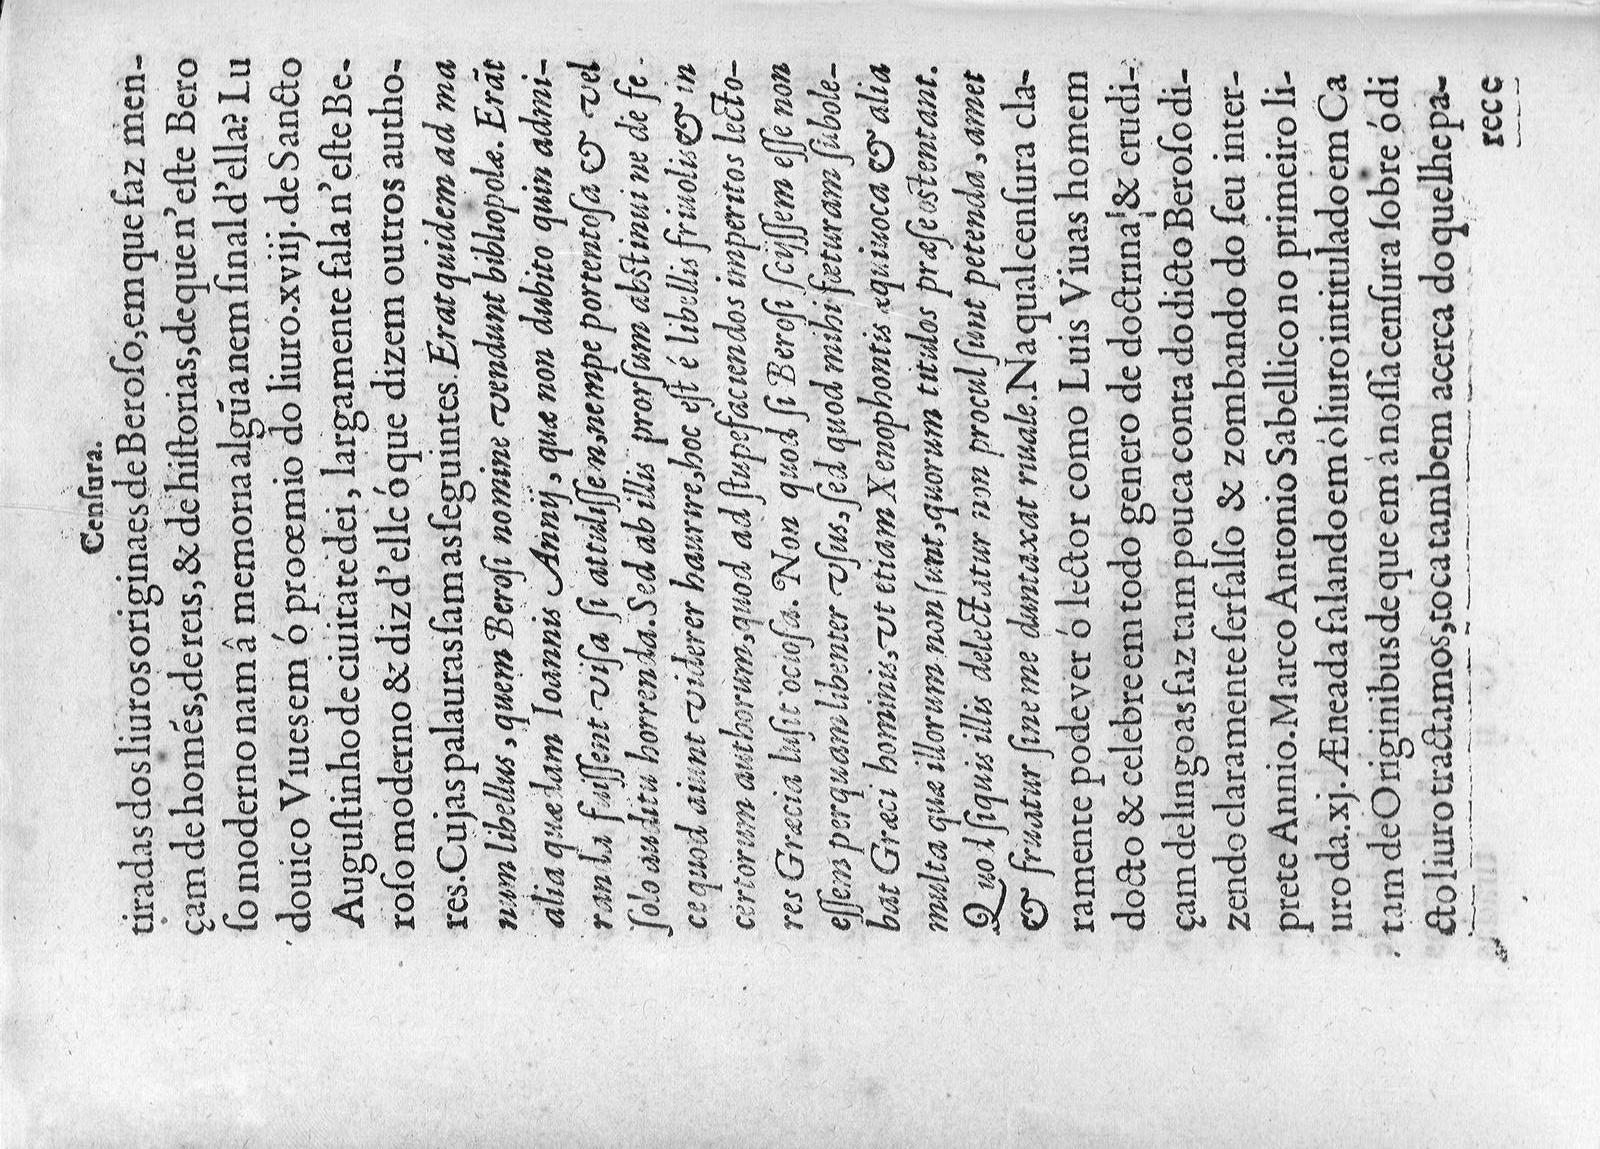 Cenſura.
tiradas dos liuros originaes de Beroſo, em que faz men-
çam de homẽs, de reis, & de hiſtorias, de que n'eſte Bero
ſo moderno nam â memoria algũa nem ſinal d'ella? Lu
douico Viues em ó proœmio do liuro. xviij. de Sancto
Auguſtinho de ciuitate dei, largamente fala n'eſte Be-
roſo moderno & diz d'elle ó que dizem outros autho-
res. Cujas palauras ſam as ſeguintes. Erat quidem ad ma
num libellus, quem Beroſi nomine vendunt bibliopolæ. Erãt
alia quædam Ioannis Annij, quæ non dubito quin admi-
randa fuiſſent viſa ſi attuliſſem, nempe portentoſa & vel
ſolo auditu horrenda. Sed ab illis prorſum abſtinui ne de fe-
ce quod aiunt viderer haurire, hoc eſt é libellis friuolis & in
certorum authorum, quod ad ſtupefaciendos imperitos lecto-
res Græcia luſit ocioſa. Non quod ſi Beroſi ſcijſſem eſſe non
eſſem perquam libenter vſus, ſed quod mihi fœturam ſubole-
bat Græci hominis, vt etiam Xenophontis æquiuoca & alia
multa quæ illorum non ſunt, quorum titulos præſe oſtentant.
Quod ſiquis illis delectatur non procul ſunt petenda, amet
& fruatur ſine me duntaxat riuale. Na qual cenſura cla-
ramente pode ver ó lector como Luis Viuas homem
docto & celebre em todo genero de doctrina & erudi-
çam de lingoas faz tam pouca conta do dicto Beroſo di-
zendo claramente ſer falſo & zombando do ſeu inter-
prete Annio. Marco Antonio Sabellico no primeiro li-
uro da. xj. Æneada falando em ó liuro intitulado em Ca
tam de Originibus de que em á noſſa cenſura ſobre ó di
cto liuro tractamos, toca tambem acerca do que lhe pa-
rece